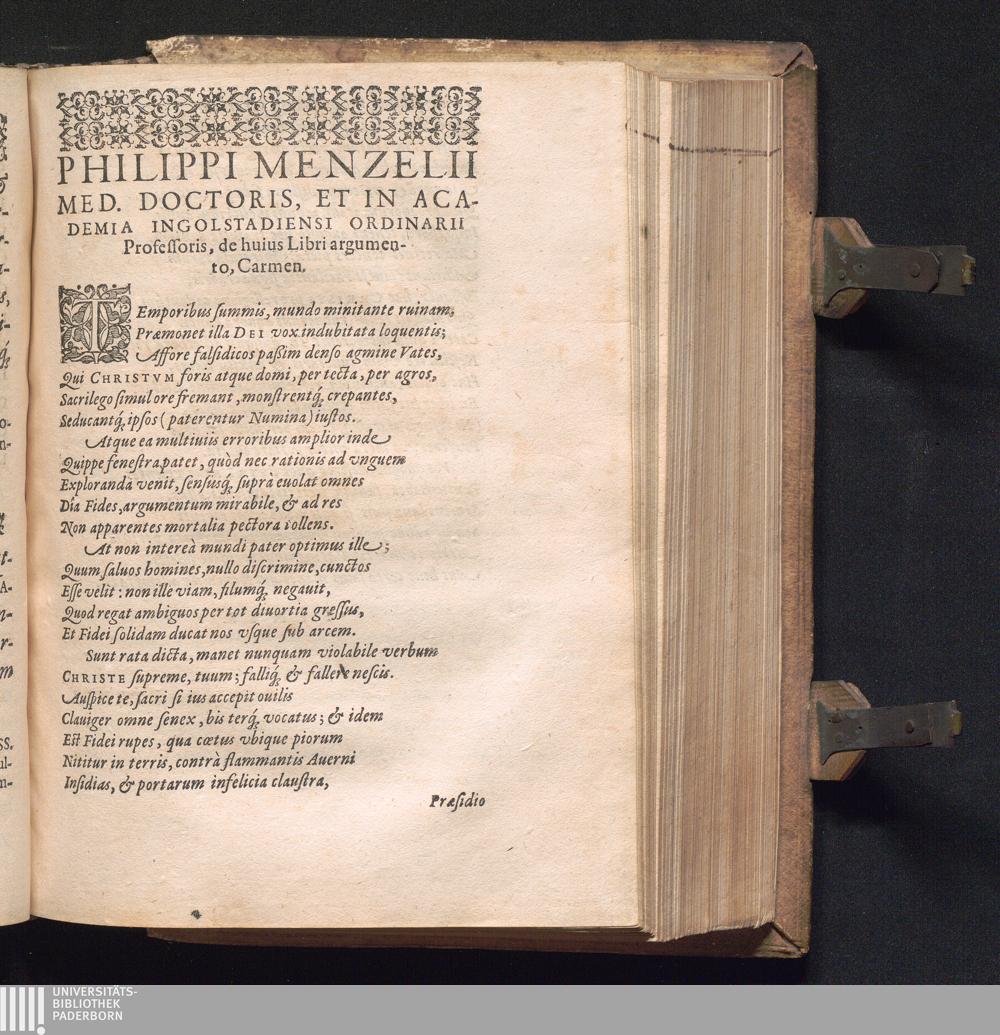 PHILIPPI MENZELII
MED. DOCTORIS, ET IN ACA-
DEMIA INGOLSTADIENSI ORDINARII
Profeſſoris, de huius Libri argumen-
to, Carmen.
TEmporibus ſummis, mundo minitante ruinam,
Præmonet illa DEI vox indubitata loquentis;
Affore falſidicos paßim denſo agmine Vates,
Qui CHRISTVM foris atque domi, per tecta, per agros,
Sacrilego ſimul ore fremant, monſtrentq́, crepantes,
Seducantq́, ipſos (paterentur Numina) iuſtos.
Atque ea multiuiis erroribus amplior inde
Quippe feneſtra patet, quòd nec rationis ad vnguem
Exploranda venit, ſenſusq́, ſuprà euolat omnes
Dîa Fides, argumentum mirabile, & ad res
Non apparentes mortalia pectora tollens.
At non intereà mundi pater optimus ille;
Quum ſaluos homines, nullo diſcrimine, cunctos
Eſſe velit: non ille viam, filumq́, negauit,
Quod regat ambiguos per tot diuortia greſſus,
Et Fidei ſolidam ducat nos vſque ſub arcem.
Sunt rata dicta, manet nunquam violabile verbum
CHRISTE ſupreme, tuum; falliq́, & fallere neſcis.
Auſpice te, ſacri ſi ius accepit ouilis
Clauiger omne ſenex, bis terq́, vocatus; & idem
Eſt Fidei rupes, qua cœtus vbique piorum
Nititur in terris, contrà flammantis Auerni
Inſidias, & portarum infelicia clauſtra,
Præſidio
UNIVERSITÄTS-
BIBLIOTHEK
PADERBORN